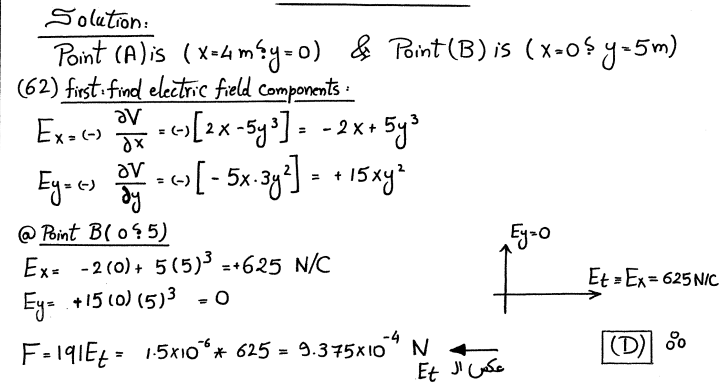 Solution:
Point (A) is (x=4m ؟ y=0) & Point (B) is (x=0 ؟ y=5m)
(62) first: find electric field components:
Ex = (-) ∂V/∂x = (-)[2x - 5y³] = - 2x + 5y³
Ey = (-) ∂V/∂y = (-)[- 5x·3y²] = + 15xy²
@ Point B(0 ؟ 5)
Ex = -2(0) + 5(5)³ = +625 N/C
Ey = +15(0)(5)³ = 0
Ey=0
Et = Ex = 625 N/C
F = |q|Et = 1.5x10⁻⁶ * 625 = 9.375x10⁻⁴ N ← عكس ال Et
(D)